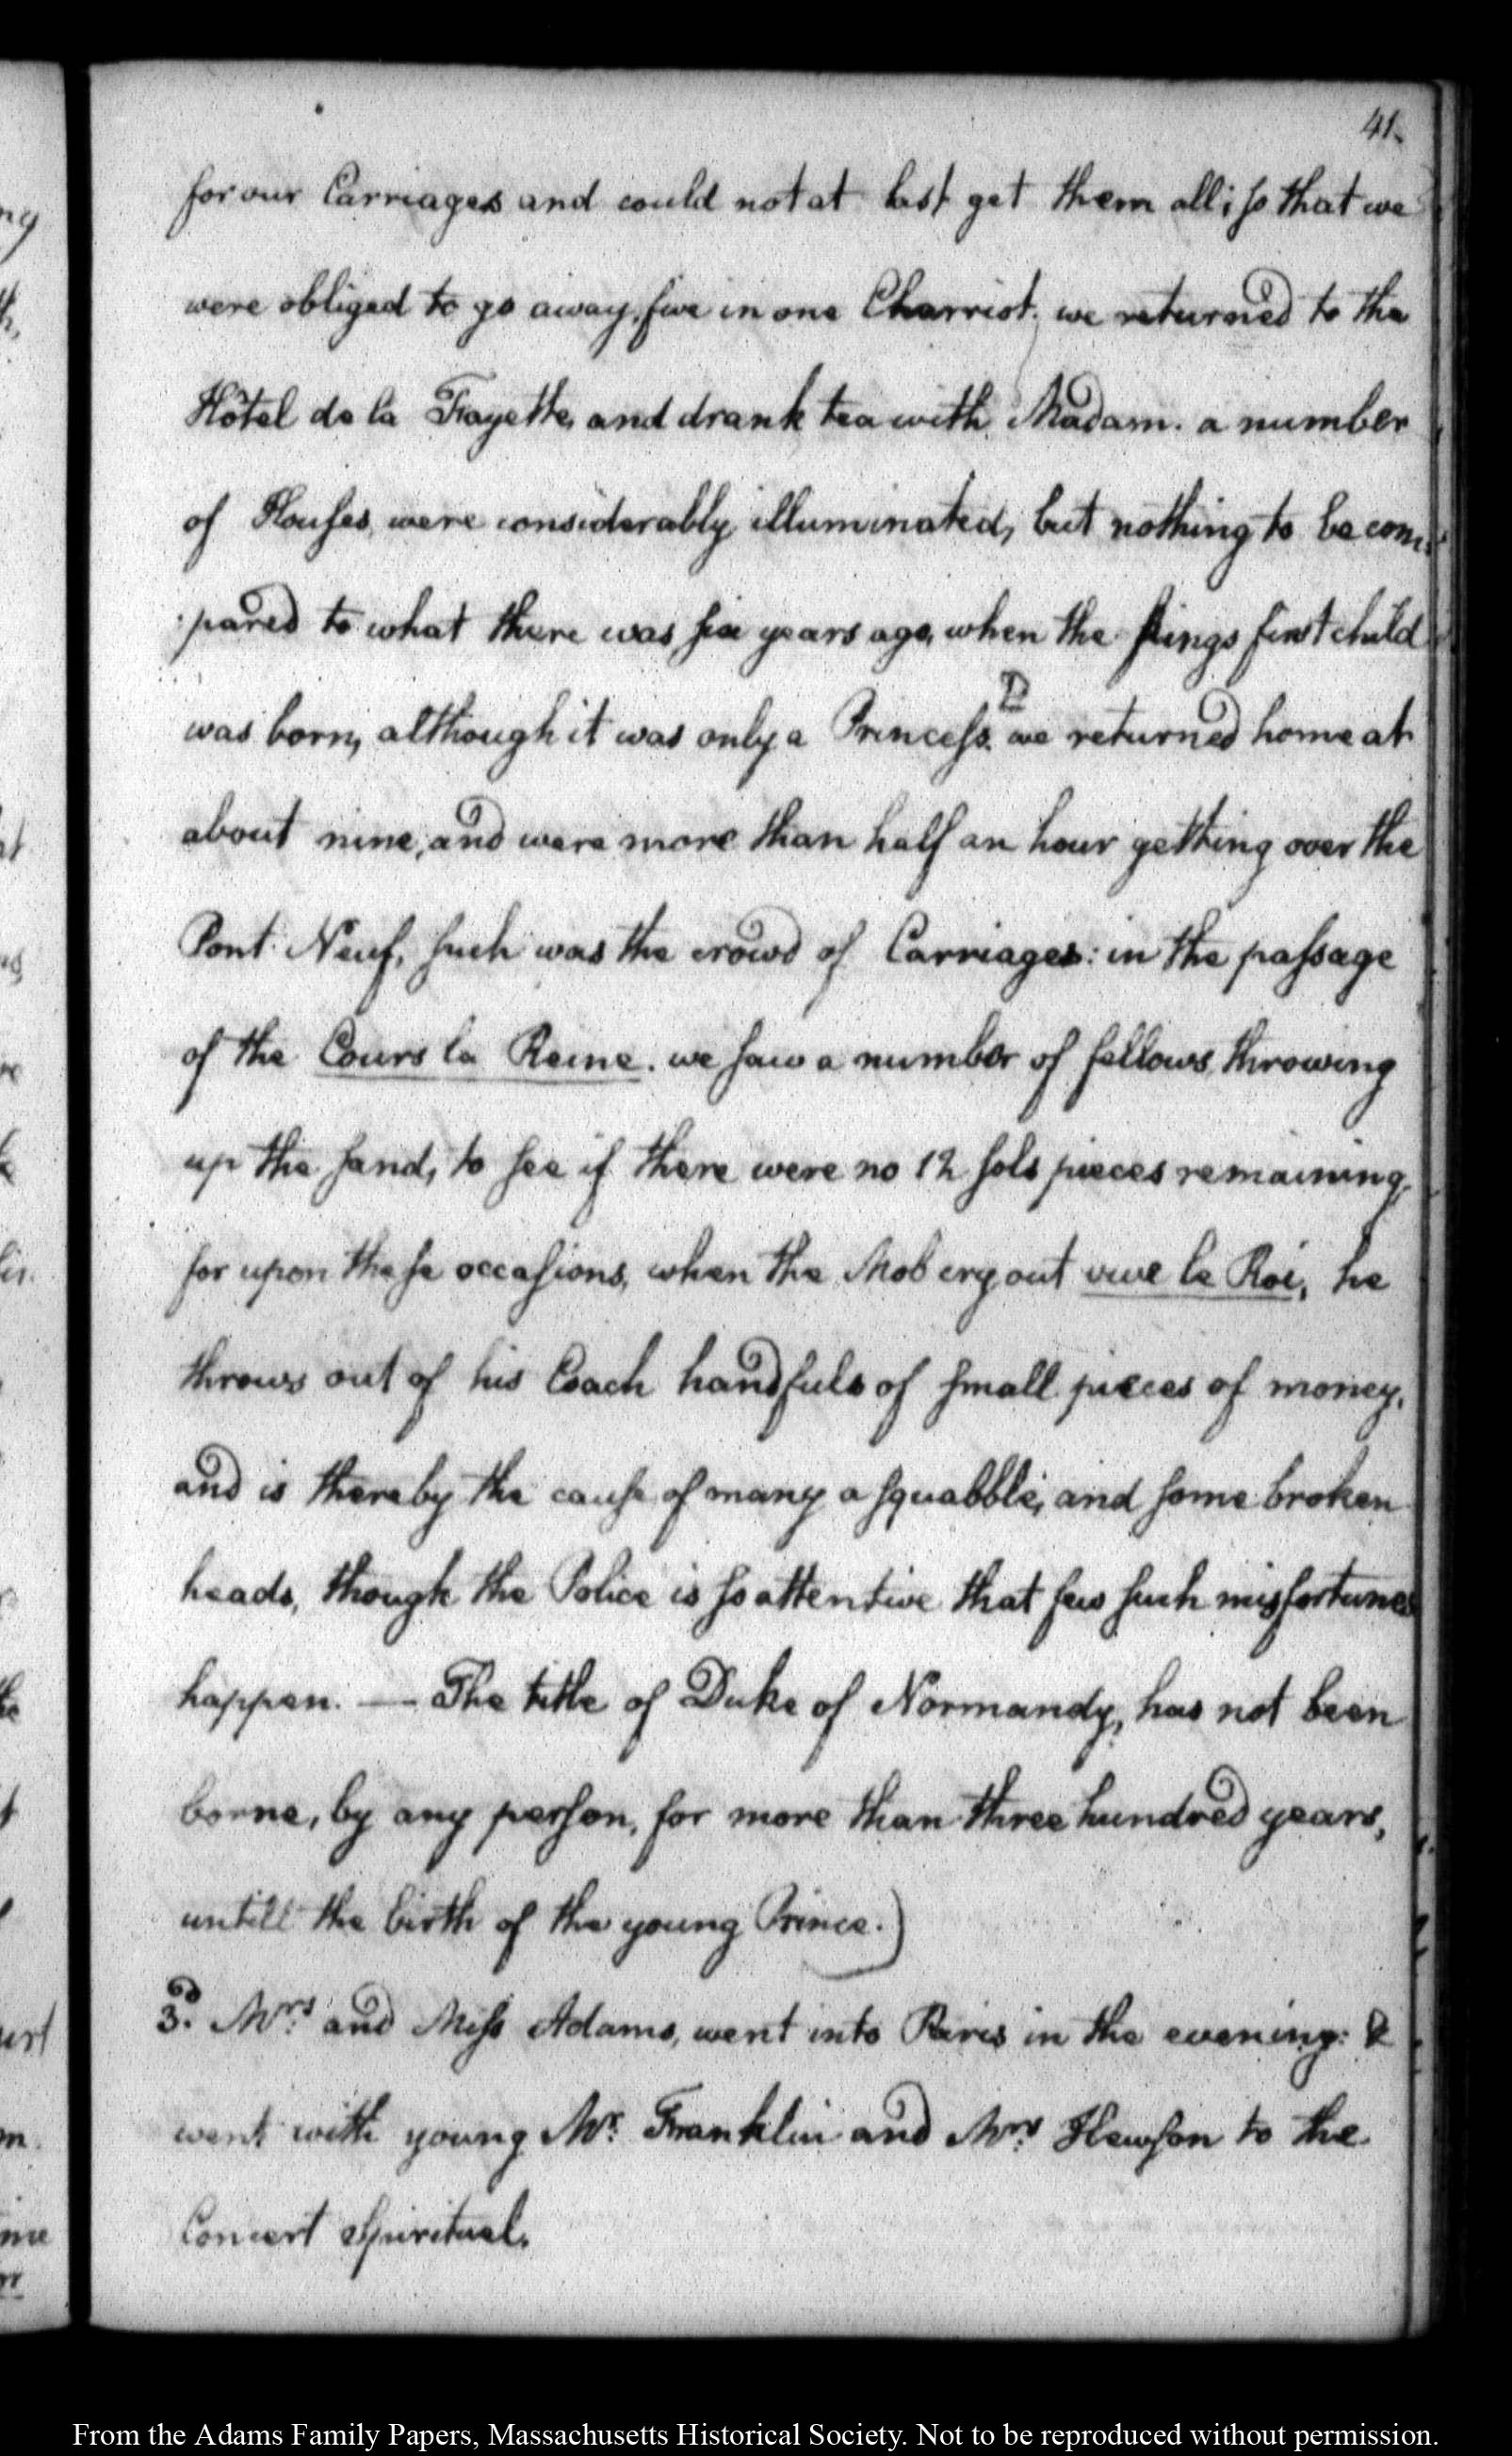 41.
for our Carriages and could not at last get them all; so that we
were obliged to go away, five in one Charriot. we returned to the
Hôtel de la Fayette, and drank tea with Madam. a number
of Houses, were considerably illuminated, but nothing to be com:
:pared to what there was six years ago, when the kings first child
was born, although it was only a Princess. we returned home at
about nine, and were more than half an hour getting over the
Pont Neuf, such was the crowd of Carriages: in the passage
of the Cours la Reine. we saw a number of fellows, throwing
up the sand, to see if there were no 12 sols pieces remaining,
for upon these occasions, when the Mob cry out vive le Roi, he
throws out of his Coach handfuls of small pieces of money,
and is thereby the cause of many a squabble, and some broken
heads, though the Police is so attentive that few such misfortunes
happen. — The title of Duke of Normandy, has not been
borne, by any person, for more than three hundred years,
untill the birth of the young Prince.)
3d. Mrs. and Miss Adams, went into Paris in the evening: &
went with young Mr. Franklin and Mrs. Hewson to the
Concert Spirituel.
From the Adams Family Papers, Massachusetts Historical Society. Not to be reproduced without permission.